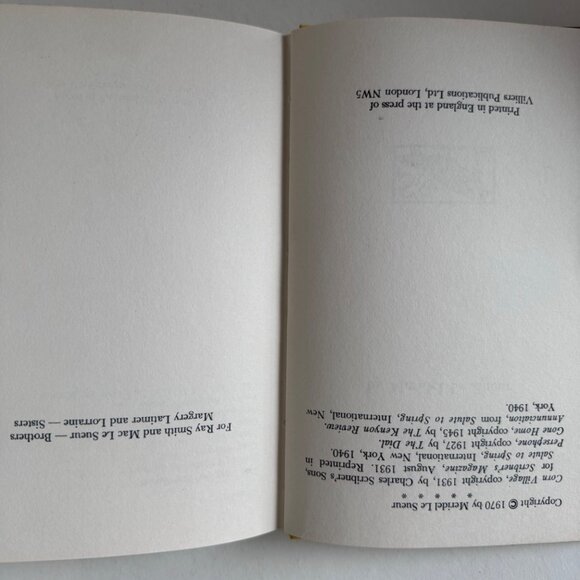 Copyright © 1970 by Meridel Le Sueur
* * * * *
Corn Village, copyright, 1931, by Charles Scribner's Sons,
for Scribner's Magazine, August 1931. Reprinted in
Salute to Spring, International, New York, 1940.
Persephone, copyright, 1927, by The Dial.
Gone Home, copyright 1945, by The Kenyon Review.
Annunciation, from Salute to Spring, International, New
York, 1940.
Printed in England at the press of
Villiers Publications Ltd, London NW5
For Ray Smith and Mac Le Sueur — Brothers
Margery Latimer and Lorraine — Sisters